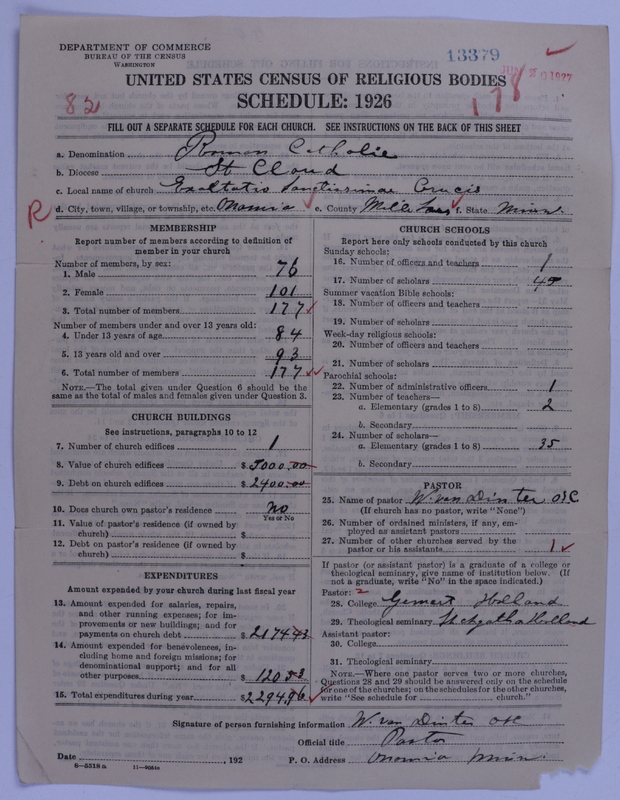 DEPARTMENT OF COMMERCE
BUREAU OF THE CENSUS
WASHINGTON
13379
JUN 20 1927
UNITED STATES CENSUS OF RELIGIOUS BODIES
SCHEDULE: 1926
82
178
FILL OUT A SEPARATE SCHEDULE FOR EACH CHURCH. SEE INSTRUCTIONS ON THE BACK OF THIS SHEET
a. Denomination Roman Catholic
b. Diocese St Cloud
c. Local name of church Exaltatio Sanctissimae Crucis
R
d. City, town, village, or township, etc. Onamia e. County Mille Lacs f. State Minn.
MEMBERSHIP
Report number of members according to definition of
member in your church
Number of members, by sex:
1. Male 76
2. Female 101
3. Total number of members 177
Number of members under and over 13 years old:
4. Under 13 years of age 84
5. 13 years old and over 93
6. Total number of members 177
NOTE.—The total given under Question 6 should be the
same as the total of males and females given under Question 3.
CHURCH BUILDINGS
See instructions, paragraphs 10 to 12
7. Number of church edifices 1
8. Value of church edifices $5000.00
9. Debt on church edifices $2400.00
10. Does church own pastor's residence no
Yes or No
11. Value of pastor's residence (if owned by
church) $
12. Debt on pastor's residence (if owned by
church) $
EXPENDITURES
Amount expended by your church during last fiscal year
13. Amount expended for salaries, repairs,
and other running expenses; for im-
provements or new buildings; and for
payments on church debt $2174.43
14. Amount expended for benevolences, in-
cluding home and foreign missions; for
denominational support; and for all
other purposes $120.53
15. Total expenditures during year $2294.96
CHURCH SCHOOLS
Report here only schools conducted by this church
Sunday schools:
16. Number of officers and teachers 1
17. Number of scholars
Summer vacation Bible schools:
18. Number of officers and teachers
19. Number of scholars
Week-day religious schools:
20. Number of officers and teachers
21. Number of scholars
Parochial schools:
22. Number of administrative officers 1
23. Number of teachers—
a. Elementary (grades 1 to 8) 2
b. Secondary
24. Number of scholars—
a. Elementary (grades 1 to 8) 35
b. Secondary
PASTOR
25. Name of pastor W. van Dinter OSC
(If church has no pastor, write "None")
26. Number of ordained ministers, if any, em-
ployed as assistant pastors
27. Number of other churches served by the
pastor or his assistants 1
If pastor (or assistant pastor) is a graduate of a college or
theological seminary, give name of institution below. (If
not a graduate, write "No" in the space indicated.)
Pastor: 2
28. College Gemert Holland
29. Theological seminary St Agatha Holland
Assistant pastor:
30. College
31. Theological seminary
NOTE.—Where one pastor serves two or more churches,
Questions 28 and 29 should be answered only on the schedule
for one of the churches; on the schedules for the other churches,
write "See schedule for church."
Signature of person furnishing information W. van Dinter OSC
Official title Pastor
Date , 192 P. O. Address Onamia Minn.
8—5518 a